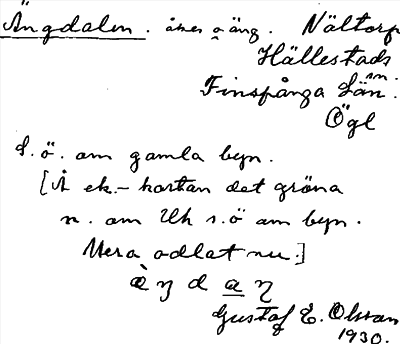 Ängdalen. åker o äng. Nältorp
Hällestads
sn.
Finspånga Län.
Ögl
S. ö. om gamla byn.
[Å ek.-kartan det gröna
n. om Uh s.ö om byn.
Mera odlat nu.]
Gustaf E. Olsson
1930.